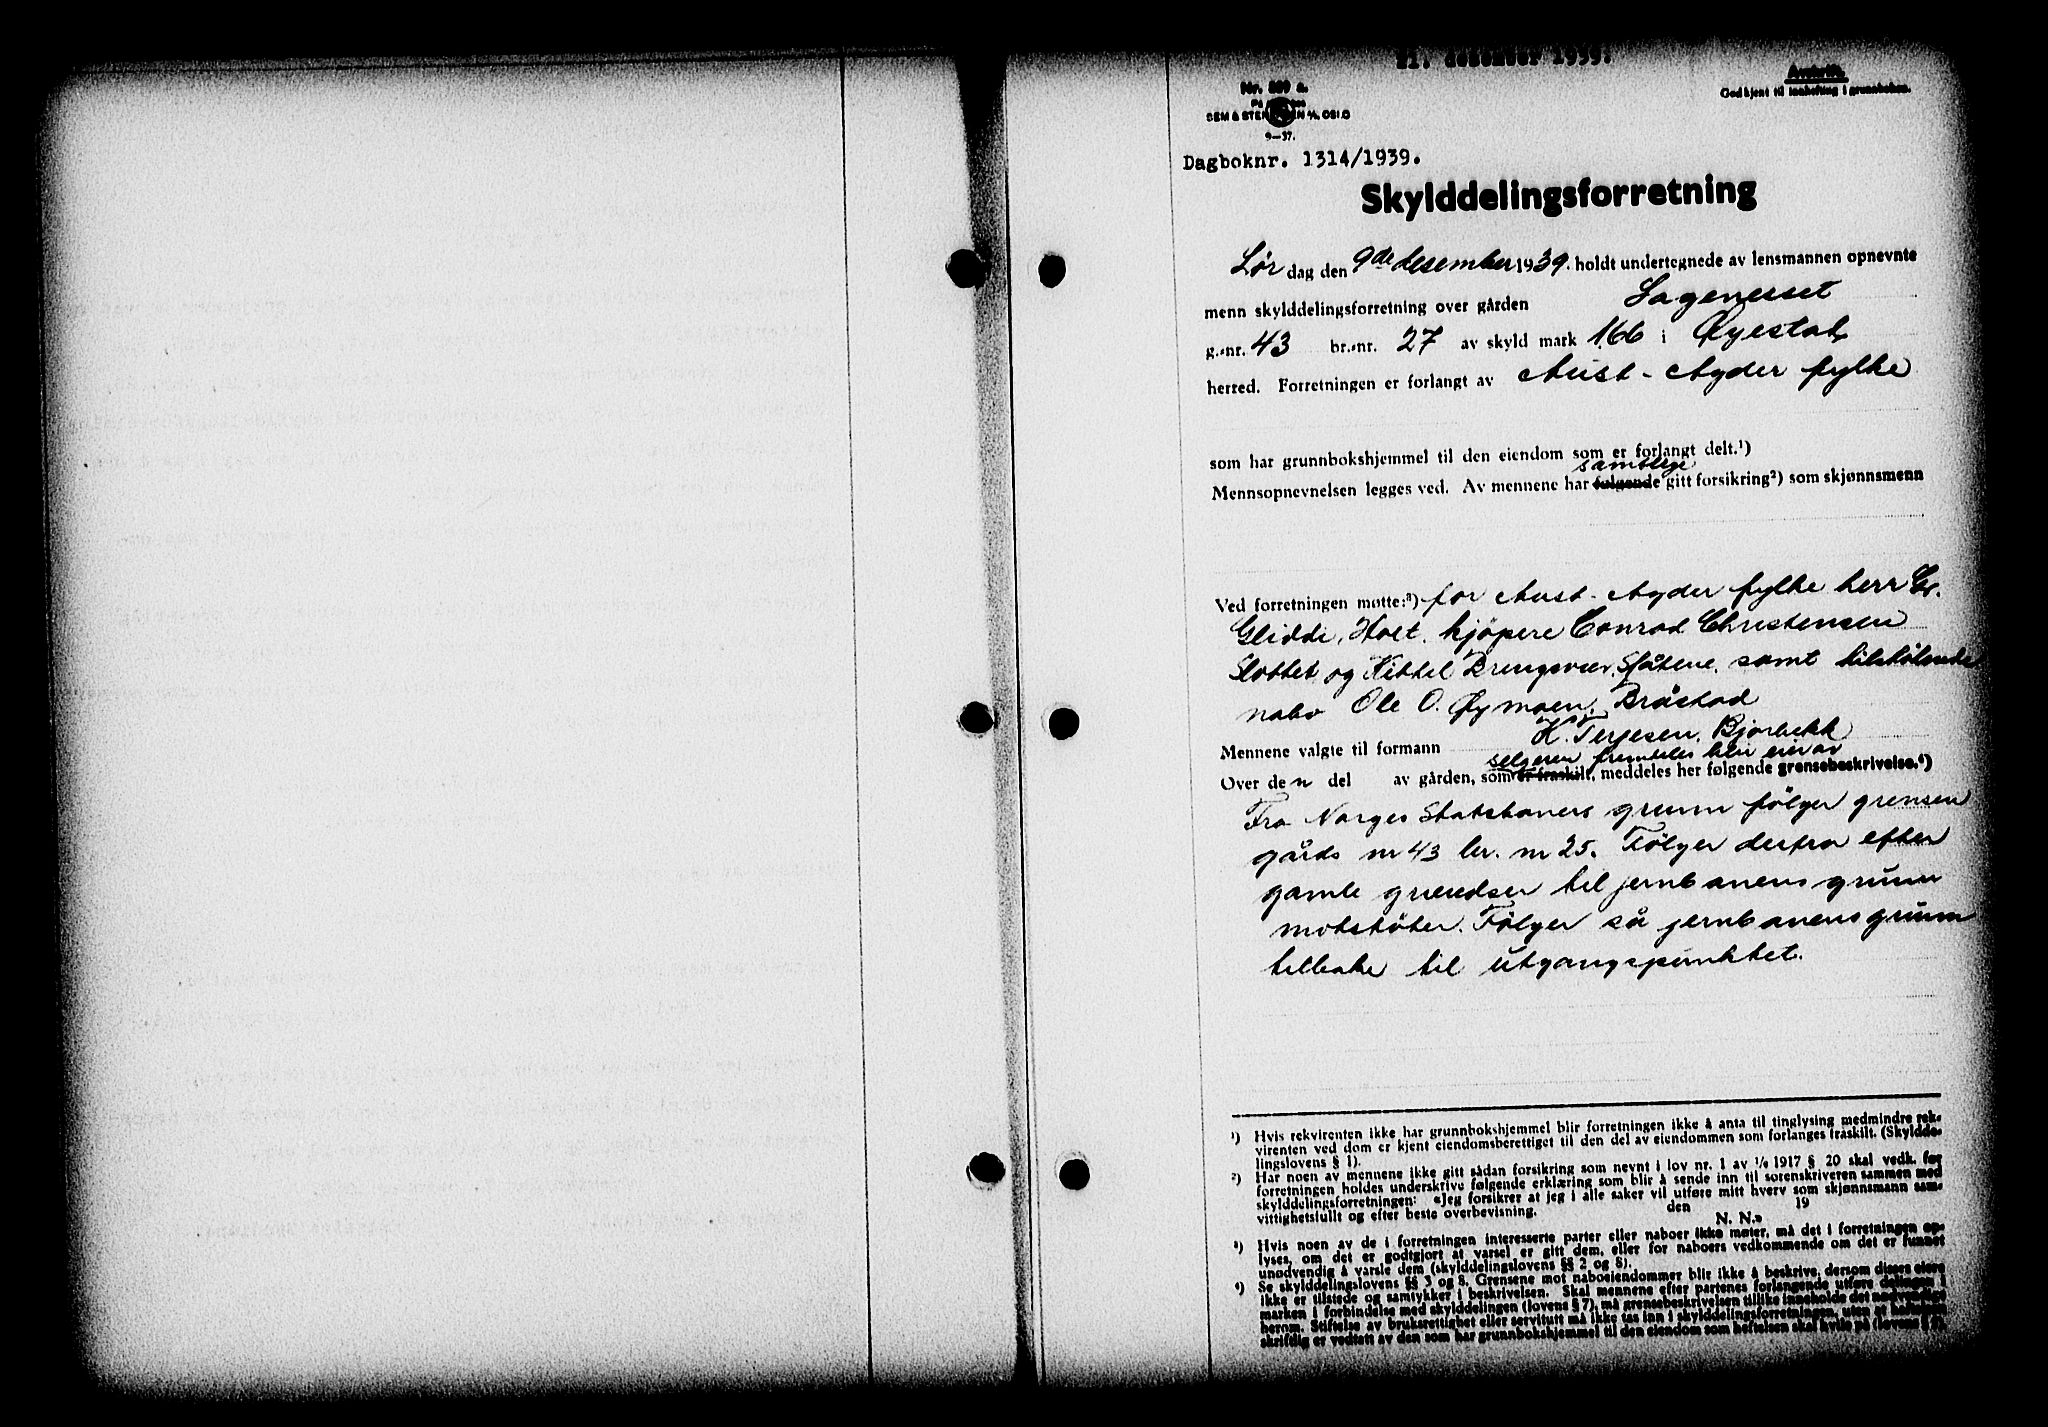 11. desember 1939.
Avskrift.
Godkjent til innhefting i grunnboken.
Nr. 889 a.
SEM & STENERSEN A/S. OSLO
9—37.
Dagboknr. 1314/1939.
Skylddelingsforretning
Lør dag den 9de desember 1939. holdt undertegnede av lensmannen opnevnte
menn skylddelingsforretning over gården Sagenesset
g.-nr. 43 br.-nr. 27 av skyld mark 166 i Øyestad
herred. Forretningen er forlangt av Aust-Agder fylke
som har grunnbokshjemmel til den eiendom som er forlangt delt.¹)
samtlige
Mennsopnevnelsen legges ved. Av mennene har følgende gitt forsikring²) som skjønnsmenn
Ved forretningen møtte:³) for Aust-Agder fylke herr G.
Gliddi, Holt. kjøpere Conrad Christensen
Slottet og Kittel Drengsvær, Slåtene. samt tilstøtende
nabo Ole O. Øymoen, Bråstad
Mennene valgte til formann H. Terjesen, Bjorbekk
selgeren fremdeles blir eier av
Over den del av gården, som er fraskilt, meddeles her følgende grensebeskrivelse.⁴)
Fra Norges Statsbaners grunn følger grensen
gårds nr 43 br. nr 25. Følger derfra efter
gamle grændser til jernbanens grunn
motstøter. Følger så jernbanens grunn
tilbake til utgangspunktet.
¹) Hvis rekvirenten ikke har grunnbokshjemmel blir forretningen ikke å anta til tinglysing medmindre rek-
virenten ved dom er kjent eiendomsberettiget til den del av eiendommen som forlanges fraskilt. (Skyldde-
lingslovens § 1).
²) Har noen av mennene ikke gitt sådan forsikring som nevnt i lov nr. 1 av 1/6 1917 § 20 skal vedk. før
forretningen holdes underskrive følgende erklæring som blir å sende inn til sorenskriveren sammen med
skylddelingsforretningen: «Jeg forsikrer at jeg i alle saker vil utføre mitt hverv som skjønnsmann sam-
vittighetsfullt og efter beste overbevisning. den 19
N. N.»
³) Hvis noen av de i forretningen interesserte parter eller naboer ikke møter, må det i forretningen op-
lyses, om det er godtgjort at varsel er gitt dem, eller for naboers vedkommende om det er funnet
unødvendig å varsle dem (skylddelingslovens §§ 2 og 8).
⁴) Se skylddelingslovens §§ 3 og 8. Grensene mot naboeiendommer blir ikke å beskrive, dersom disses eiere
ikke er tilstede og samtykker i beskrivelsen. Skal mennene efter partenes forlangende utføre delingen i
marken i forbindelse med skylddelingen (lovens § 7), må grensebeskrivelsen tillike inneholde det nødvendige
herom. Stiftelse av bruksrettighet eller servitutt må ikke tas inn i skylddelingsforretningen, uten at heftelsen
skriftlig er vedtatt av den som har grunnbokshjemmel til den eiendom som heftelsen skal hvile på (lovens § 7).